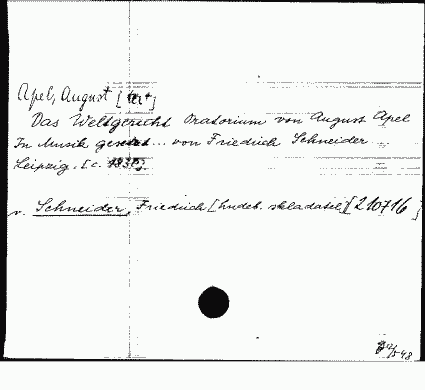 Apel, August [text]
Das Weltgericht Oratorium von August Apel
In Musik gesetzt... von Friedrich Schneider...
Leipzig. [c. 1830].
v. Schneider, Friedrich [hudeb. skladatel] [210716]